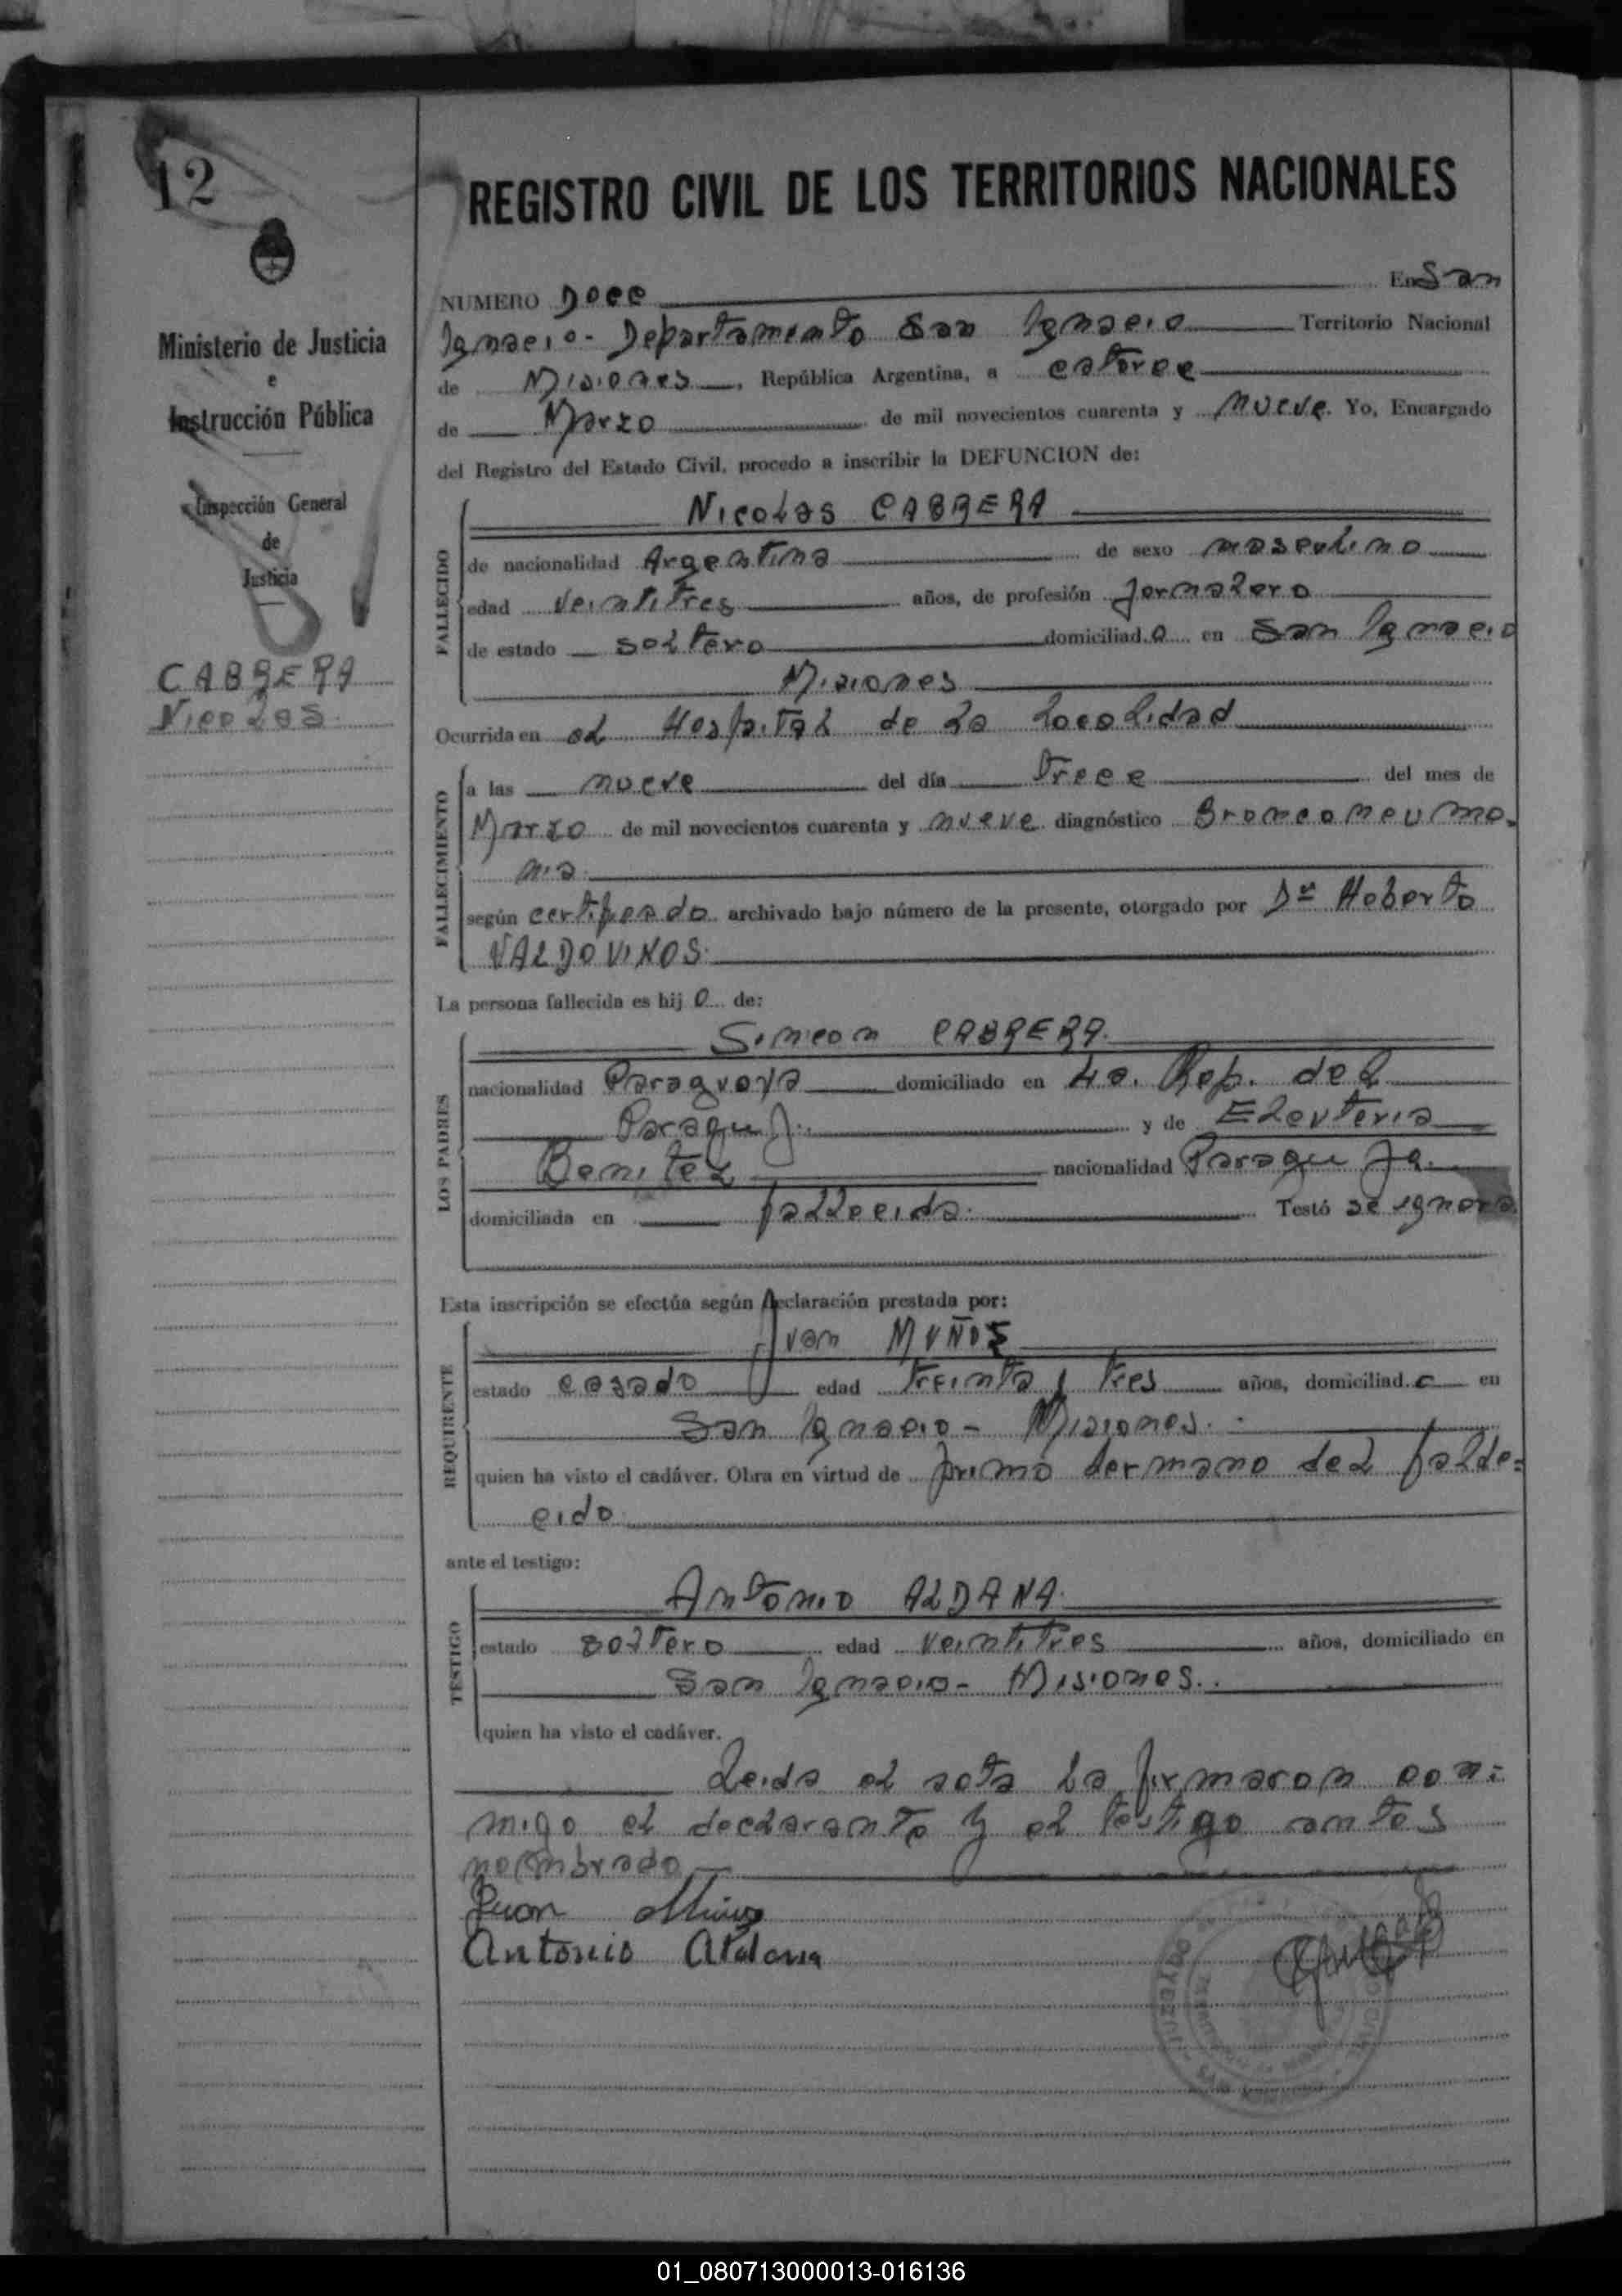 12
Ministerio de Justicia
e
Instrucción Pública
Inspección General
de
Justicia
CABRERA
Nicolas
REGISTRO CIVIL DE LOS TERRITORIOS NACIONALES
NUMERO Doce En San
Ignacio - Departamento San Ignacio Territorio Nacional
de Misiones, República Argentina, a catorce
de Marzo de mil novecientos cuarenta y nueve. Yo, Encargado
del Registro del Estado Civil, procedo a inscribir la DEFUNCION de:
FALLECIDO
Nicolas CABRERA
de nacionalidad Argentina de sexo masculino
edad veintitres años, de profesión Jornalero
de estado soltero domiciliado en San Ignacio
Misiones
Ocurrida en el Hospital de la localidad
FALLECIMIENTO
a las nueve del día trece del mes de
Marzo de mil novecientos cuarenta y nueve diagnóstico Bronconeumo-
nia
según certificado archivado bajo número de la presente, otorgado por Dr Heberto
VALDOVINOS.
La persona fallecida es hijo de:
LOS PADRES
Simeon CABRERA.
nacionalidad Paraguaya domiciliado en La. Rep. del
Paraguay. y de Eleuteria
Benitez nacionalidad Paraguaya.
domiciliada en fallecida. Testó se ignora.
Esta inscripción se efectúa según declaración prestada por:
REQUIRENTE
Juan MUÑOZ
estado casado edad treinta y tres años, domiciliado en
San Ignacio - Misiones.
quien ha visto el cadáver. Obra en virtud de primo hermano del falle=
cido
ante el testigo:
TESTIGO
Antonio ALDANA.
estado soltero edad veintitres años, domiciliado en
San Ignacio - Misiones.
quien ha visto el cadáver.
Leida el acta la firmaron con=
migo el declarante y el testigo antes
nombrado
Juan
Antonio Aldana
01_080713000013-016136